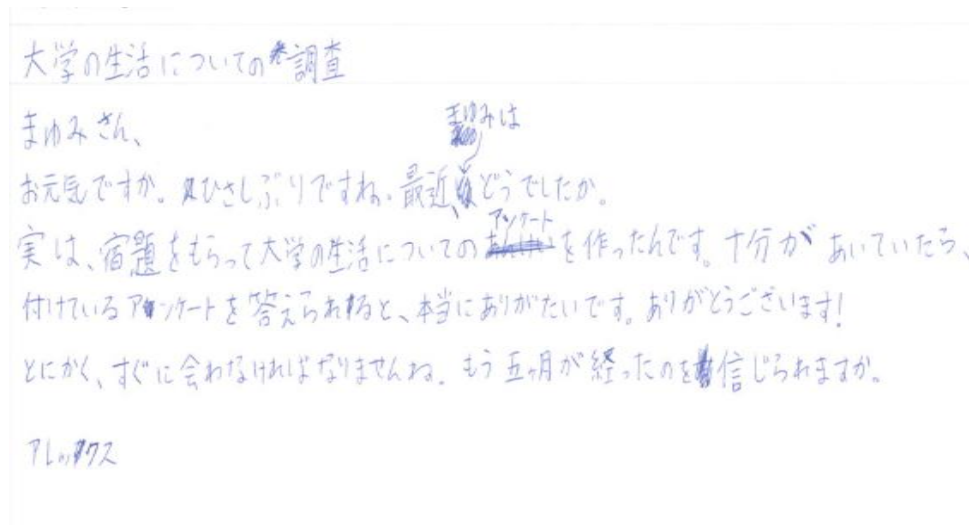 大学の生活についての調査
まゆみさん、
お元気ですか。ひさしぶりですね。最近、まゆみはどうでしたか。
実は、宿題をもらって大学の生活についてのアンケートを作ったんです。十分があいていたら、
付けているアンケートを答えられると、本当にありがたいです。ありがとうございます!
とにかく、すぐに会わなければなりませんね。もう五ヶ月が経ったのを信じられますか。
アレックス